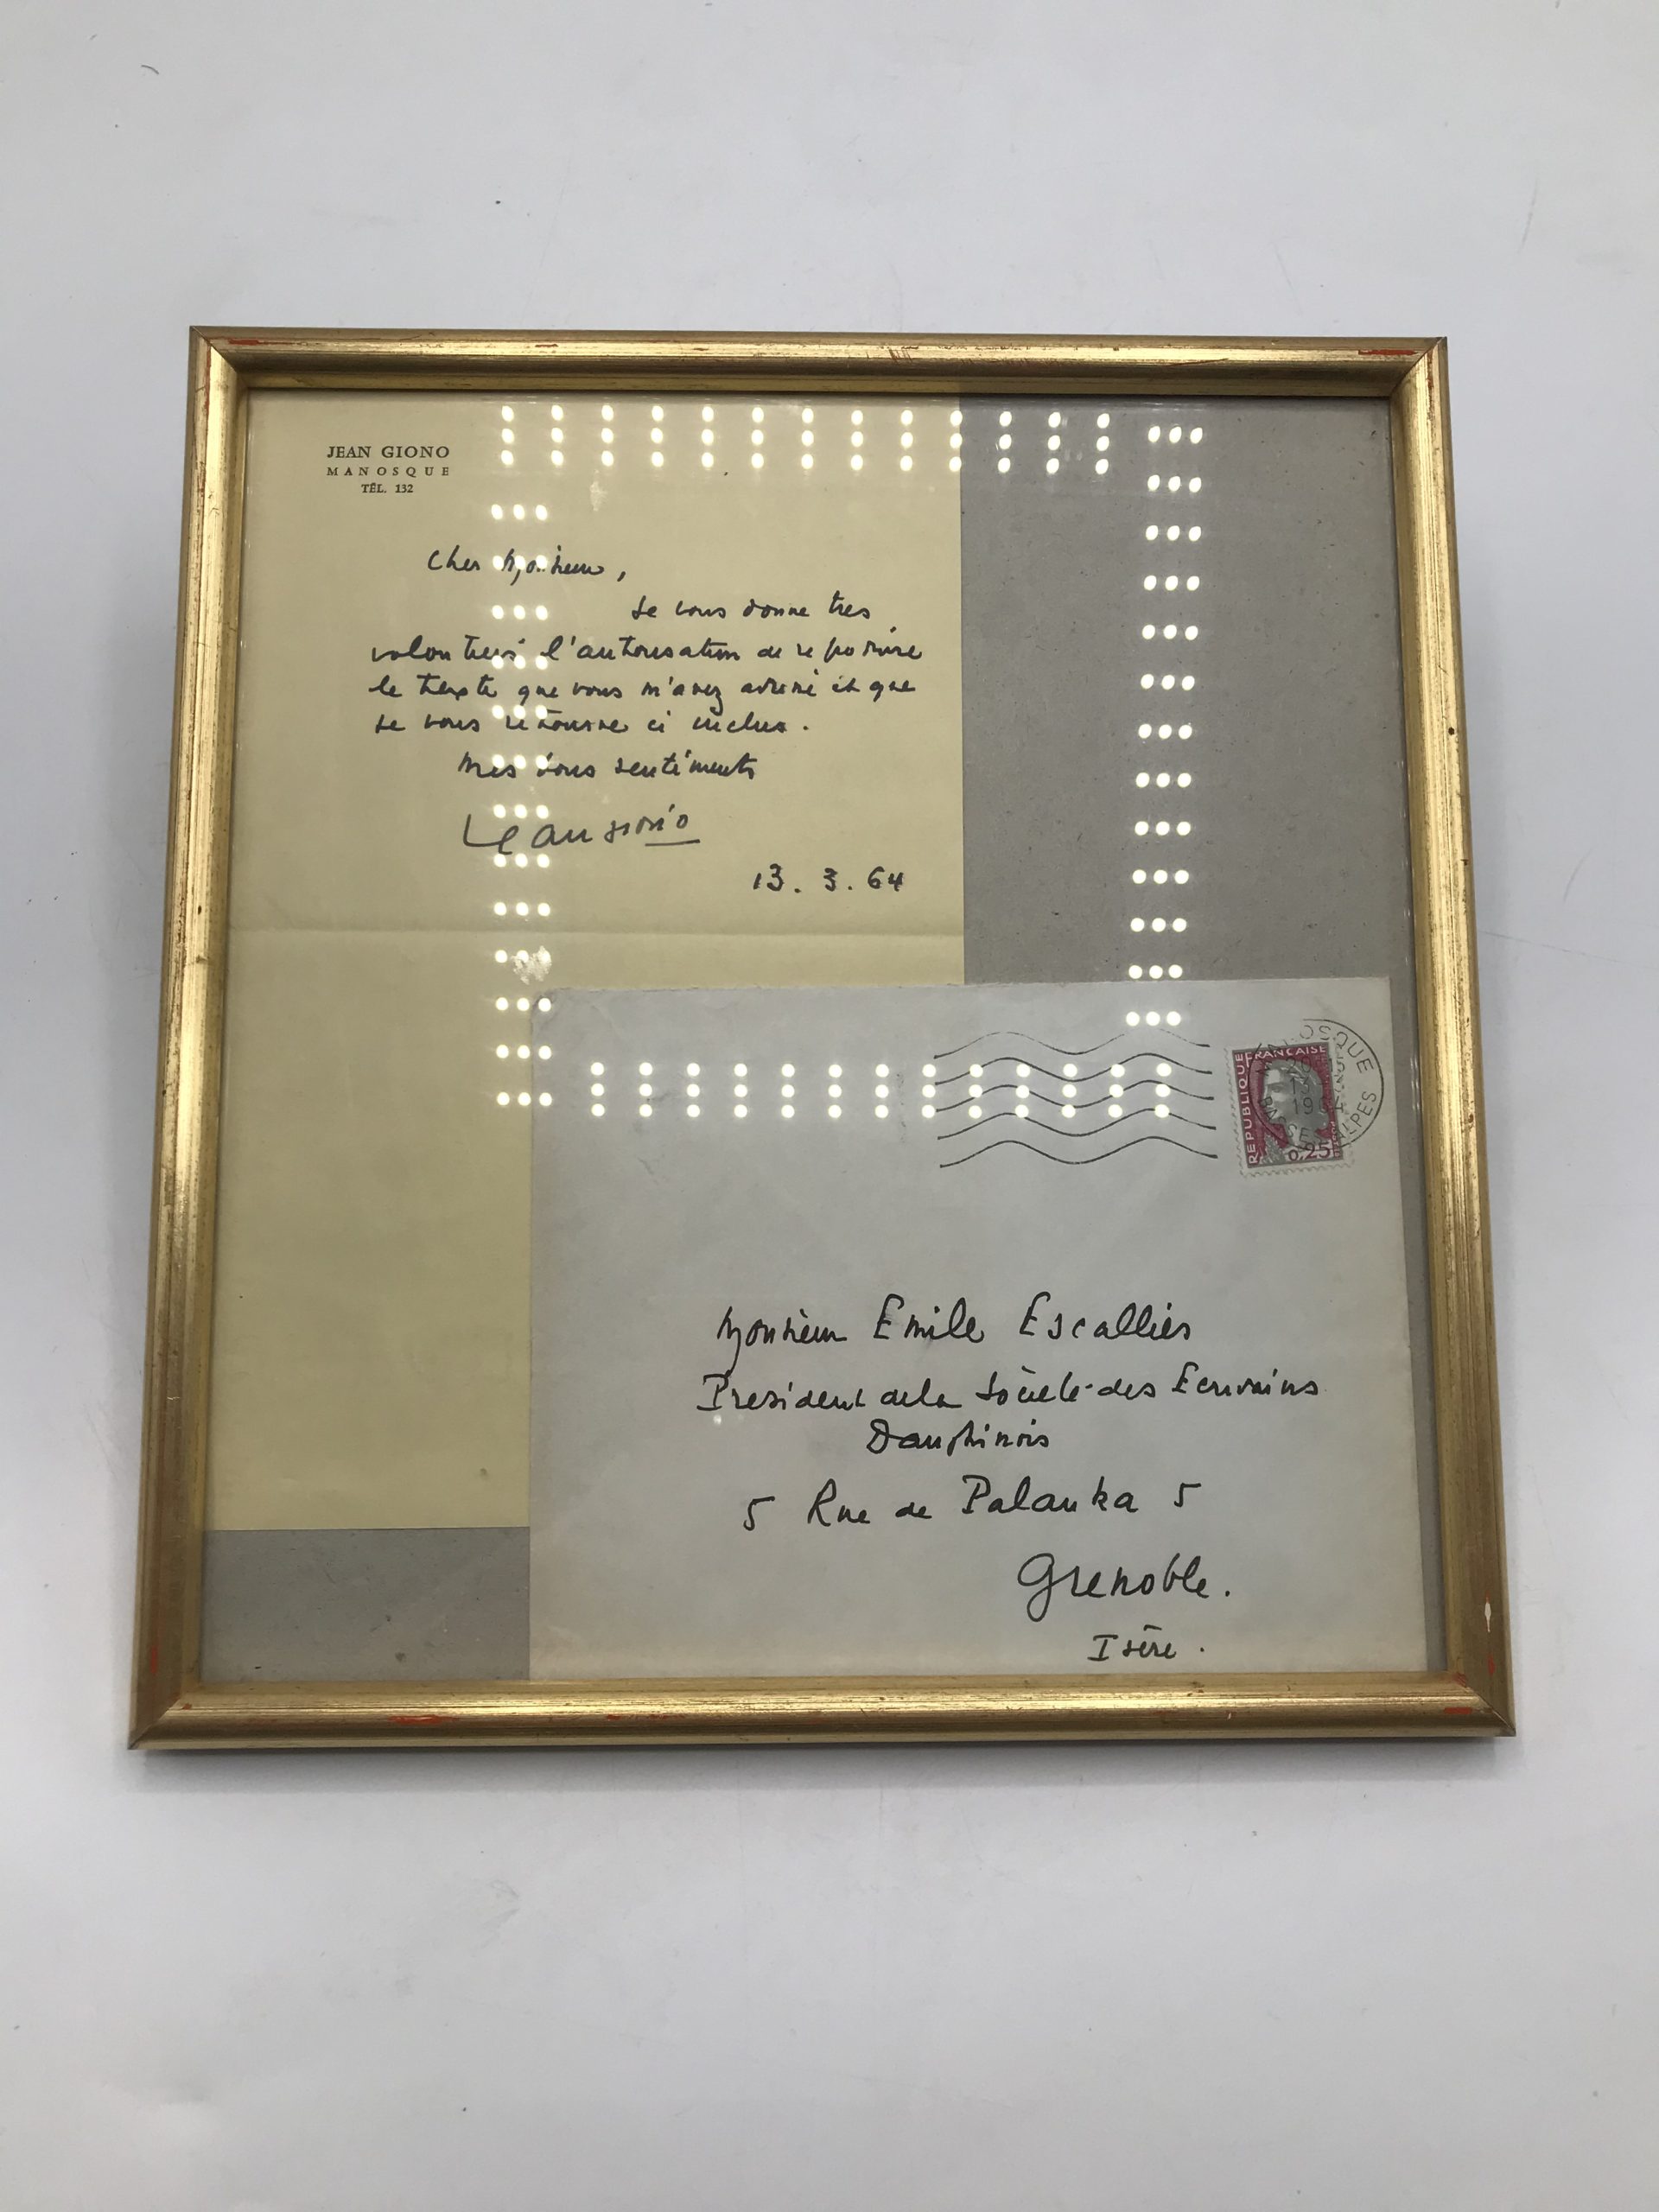 JEAN GIONO
MANOSQUE
TÉL. 132
Cher Monsieur,
Je vous donne tres
volontiers l'autorisation de reproduire
le texte que vous m'avez adressé et que
je vous retourne ci inclus.
Mes bons sentiments
Jean Giono
13. 3. 64
MANOSQUE
ALPES
REPUBLIQUE FRANCAISE
0,25
Monsieur Emile Escallier
President de la Société des Ecrivains
Dauphinois
5 Rue de Palanka 5
Grenoble.
Isère.